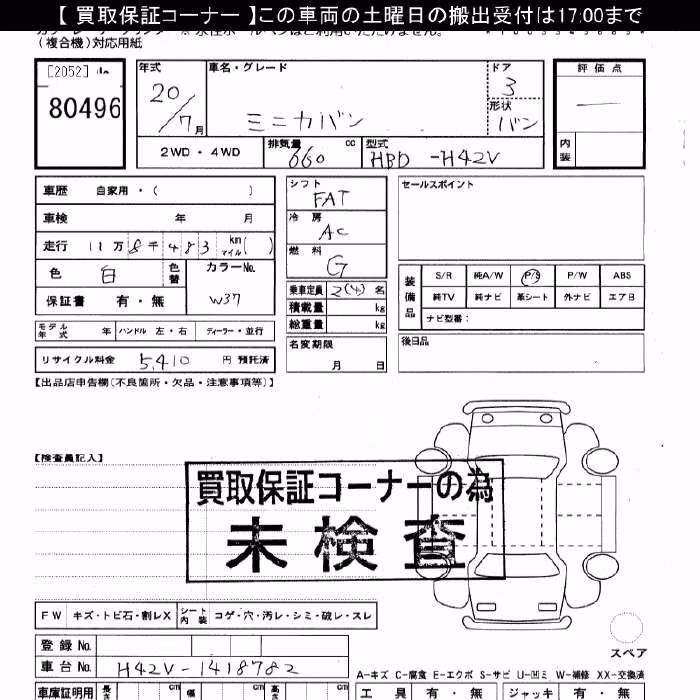 【 買取保証コーナー 】この車両の土曜日の搬出受付は17:00まで
(複合機)対応用紙
[2052]
80496
年式 車名・グレード ドア 評価点
20/7月 ミニカバン 3 —
形状 バン
内装
2WD・4WD 排気量 660 cc 型式 HBD -H42V
車歴 自家用・( )
車検 年 月
走行 11万8千483 km マイル( )
色 白 色替 カラーNo. W37
保証書 有・無
シフト FAT
冷房 AC
燃料 G
乗車定員 2(4) 名
積載量 kg
総重量 kg
セールスポイント
装備品 S/R 純A/W P/S P/W ABS
純TV 純ナビ 革シート 外ナビ エアB
ナビ型番:
モデル年式 年 ハンドル 左・右 ディーラー・並行
名変期限 月 日
後日品
リサイクル料金 5,410 円 預託済
【出品店申告欄(不良箇所・欠品・注意事項等)】
【検査員記入】
買取保証コーナーの為
未検査
FW キズ・トビ石・割レX シート内装 コゲ・穴・汚レ・シミ・破レ・スレ
スペア
登録No.
車台No. H42V-1418782
A-キズ C-腐食 E-エクボ S-サビ U-凹ミ W-補修 XX-交換済
車庫証明用 長さ cm 幅 cm 高さ cm 工具 有・無 ジャッキ 有・無